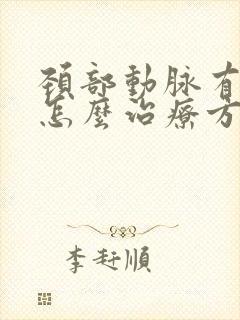 頚部動脉有
怎麼治療方
李赶順